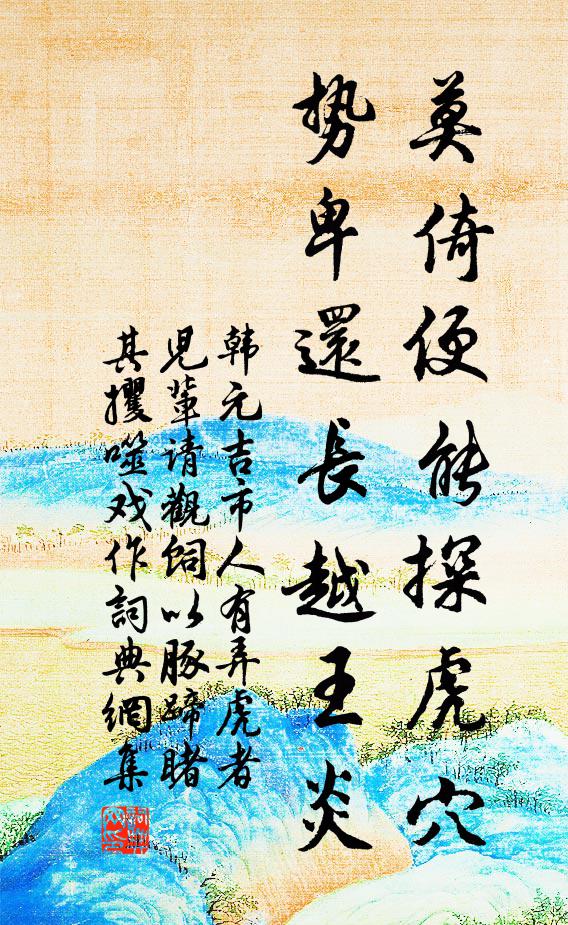 莫倚便能探虎穴
势卑還長越王炎
韩元吉市人有弄虎者
児輩请觀飼以豚蹄睹
其攫噬戏作詞典網集